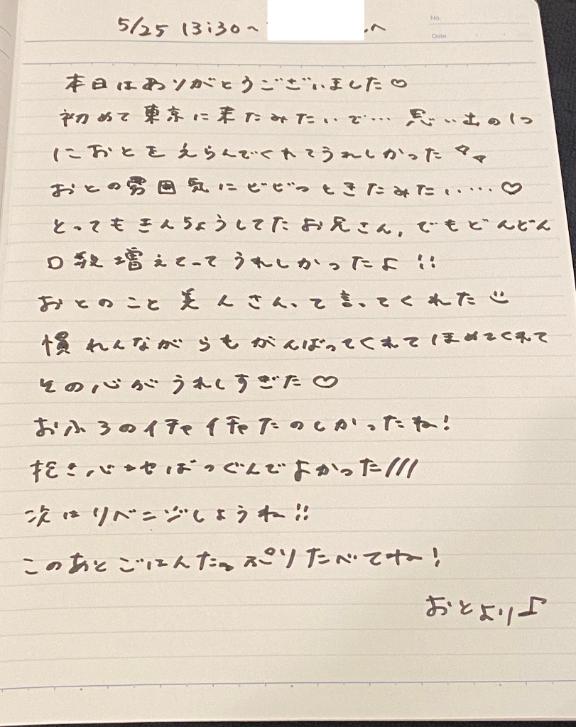 No.
Date
5/25 13:30〜 へ
本日はありがとうございました♡
初めて東京に来たみたいで… 思い出の1つ
におとをえらんでくれてうれしかった
おとの雰囲気にビビっときたみたい…♡
とってもきんちょうしてたお兄さん、でもどんどん
口数増えてってうれしかったよ!!
おとのこと美人さんって言ってくれた
慣れんながらもがんばってくれてほめてくれて
その心がうれしすぎた♡
おふろのイチャイチャたのしかったね!
抱き心地ばつぐんでよかった///
次はリベンジしようね!!
このあとごはんたっぷりたべてね!
おとより♪